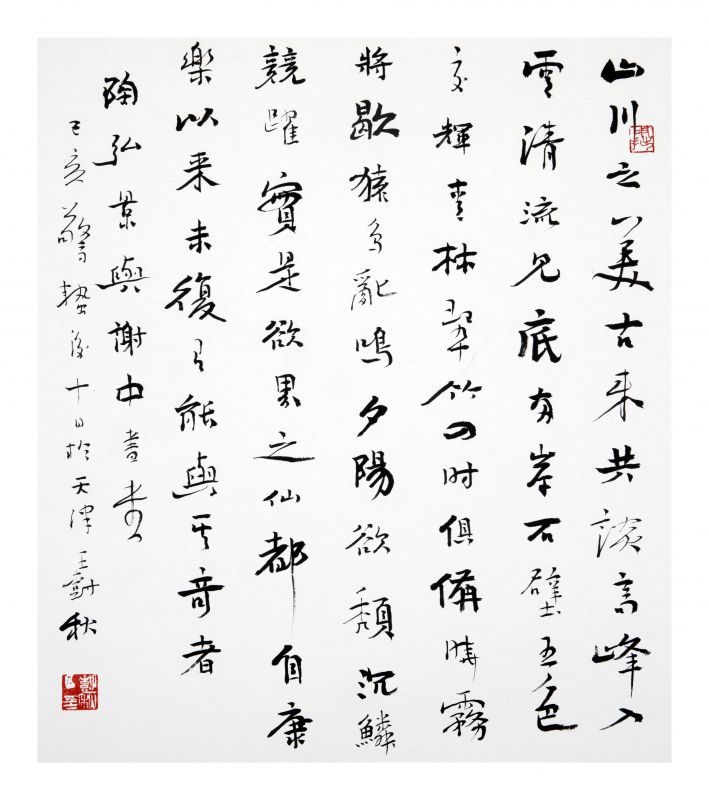 山川之美古来共談高峰入
雲清流見底两岸石壁五色
交輝青林翠竹四時俱備曉霧
將歇猿鳥亂鳴夕陽欲頹沉鱗
競躍實是欲界之仙都自康
樂以来未復有能與其奇者
陶弘景與謝中書書
己亥驚蟄後十日於天津王樹秋